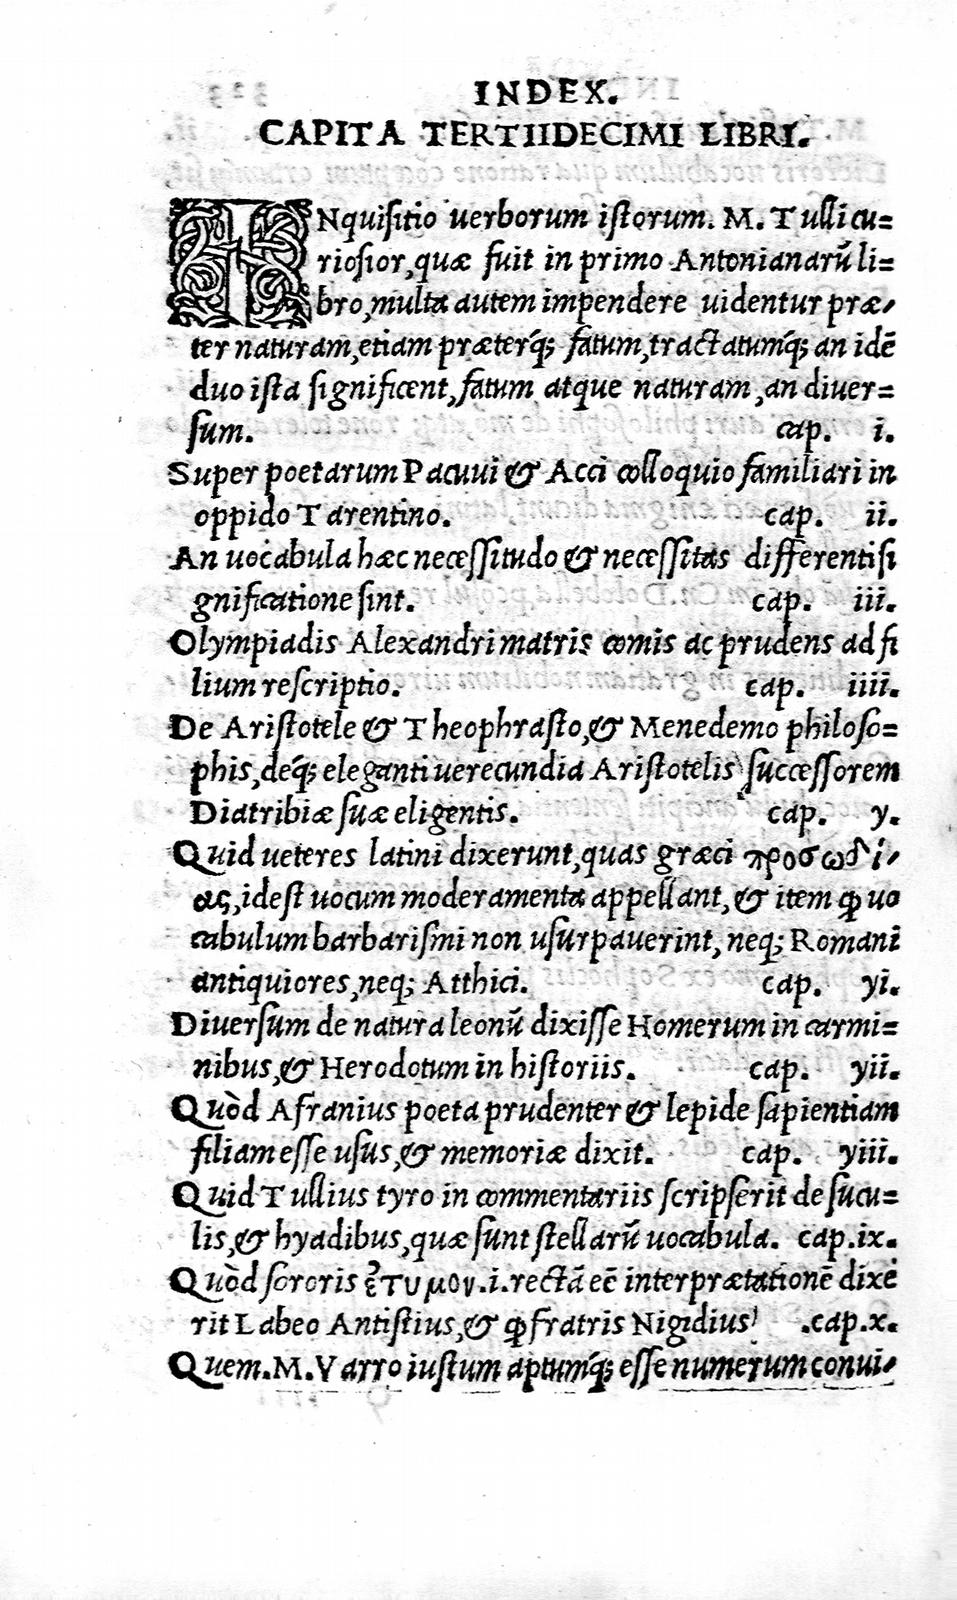 INDEX.
CAPITA TERTIIDECIMI LIBRI.
INquisitio uerborum istorum. M. Tulli cu=
riosior, quæ fuit in primo Antonianarũ li=
bro, multa autem impendere uidentur præ-
ter naturam, etiam præterq́; fatum, tractatumq́; an idẽ
duo ista significent, fatum atque naturam, an diuer=
sum. cap. i.
Super poetarum Pacuui & Acci colloquio familiari in
oppido Tarentino. cap. ii.
An uocabula hæc necessitudo & necessitas differenti si
gnificatione sint. cap. iii.
Olympiadis Alexandri matris comis ac prudens ad fi
lium rescriptio. cap. iiii.
De Aristotele & Theophrasto, & Menedemo philoso=
phis, deq́; eleganti uerecundia Aristotelis successorem
Diatribiæ suæ eligentis. cap. y.
Quid ueteres latini dixerunt, quas græci προσωδί-
ας, idest uocum moderamenta appellant, & item ꝙ uo
cabulum barbarismi non usurpauerint, neq; Romani
antiquiores, neq; Atthici. cap. yi.
Diuersum de natura leonũ dixisse Homerum in carmi=
nibus, & Herodotum in historiis. cap. yii.
Quòd Afranius poeta prudenter & lepide sapientiam
filiam esse usus, & memoriæ dixit. cap. yiii.
Quid Tullius tyro in commentariis scripserit de sucu=
lis, & hyadibus, quæ sunt stellarũ uocabula. cap. ix.
Quòd sororis ἔτυμον .i. rectã eẽ interprætationẽ dixe
rit Labeo Antistius, & ꝙ fratris Nigidius .cap. x.
Quem. M. Varro iustum aptumq́; esse numerum conui-